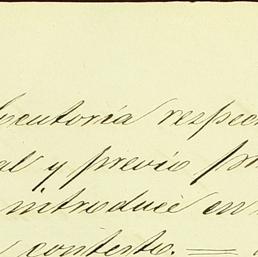 ecutoria respec
al y previo pr
introduce en
contesto. =